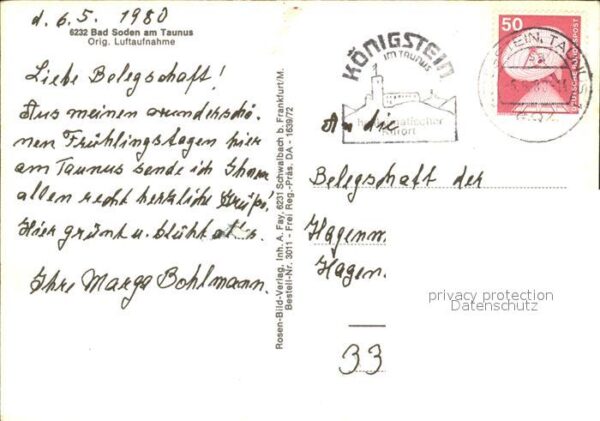 d. 6.5. 1980
6232 Bad Soden am Taunus
Orig. Luftaufnahme
Liebe Belegschaft!
Aus meinen wunderschö-
nen Frühlingstagen hier
am Taunus sende ich Ihnen
allen recht herzlich Grüße.
Hier grünt u. blüht at's.
Ihre Marga Bohlmann.
Rosen-Bild-Verlag, Inh. A. Fay, 6231 Schwalbach b. Frankfurt/M.
Bestell-Nr. 3011 - Frei Reg.-Präs. DA - 1639/72
KÖNIGSTEIN
IM TAUNUS
heilklimatischer
Kurort
50
DEUTSCHE BUNDESPOST
KÖNIGSTEIN, TAUNUS
An die
Belegschaft der
Hagenw.
Hagen.
privacy protection
Datenschutz
33